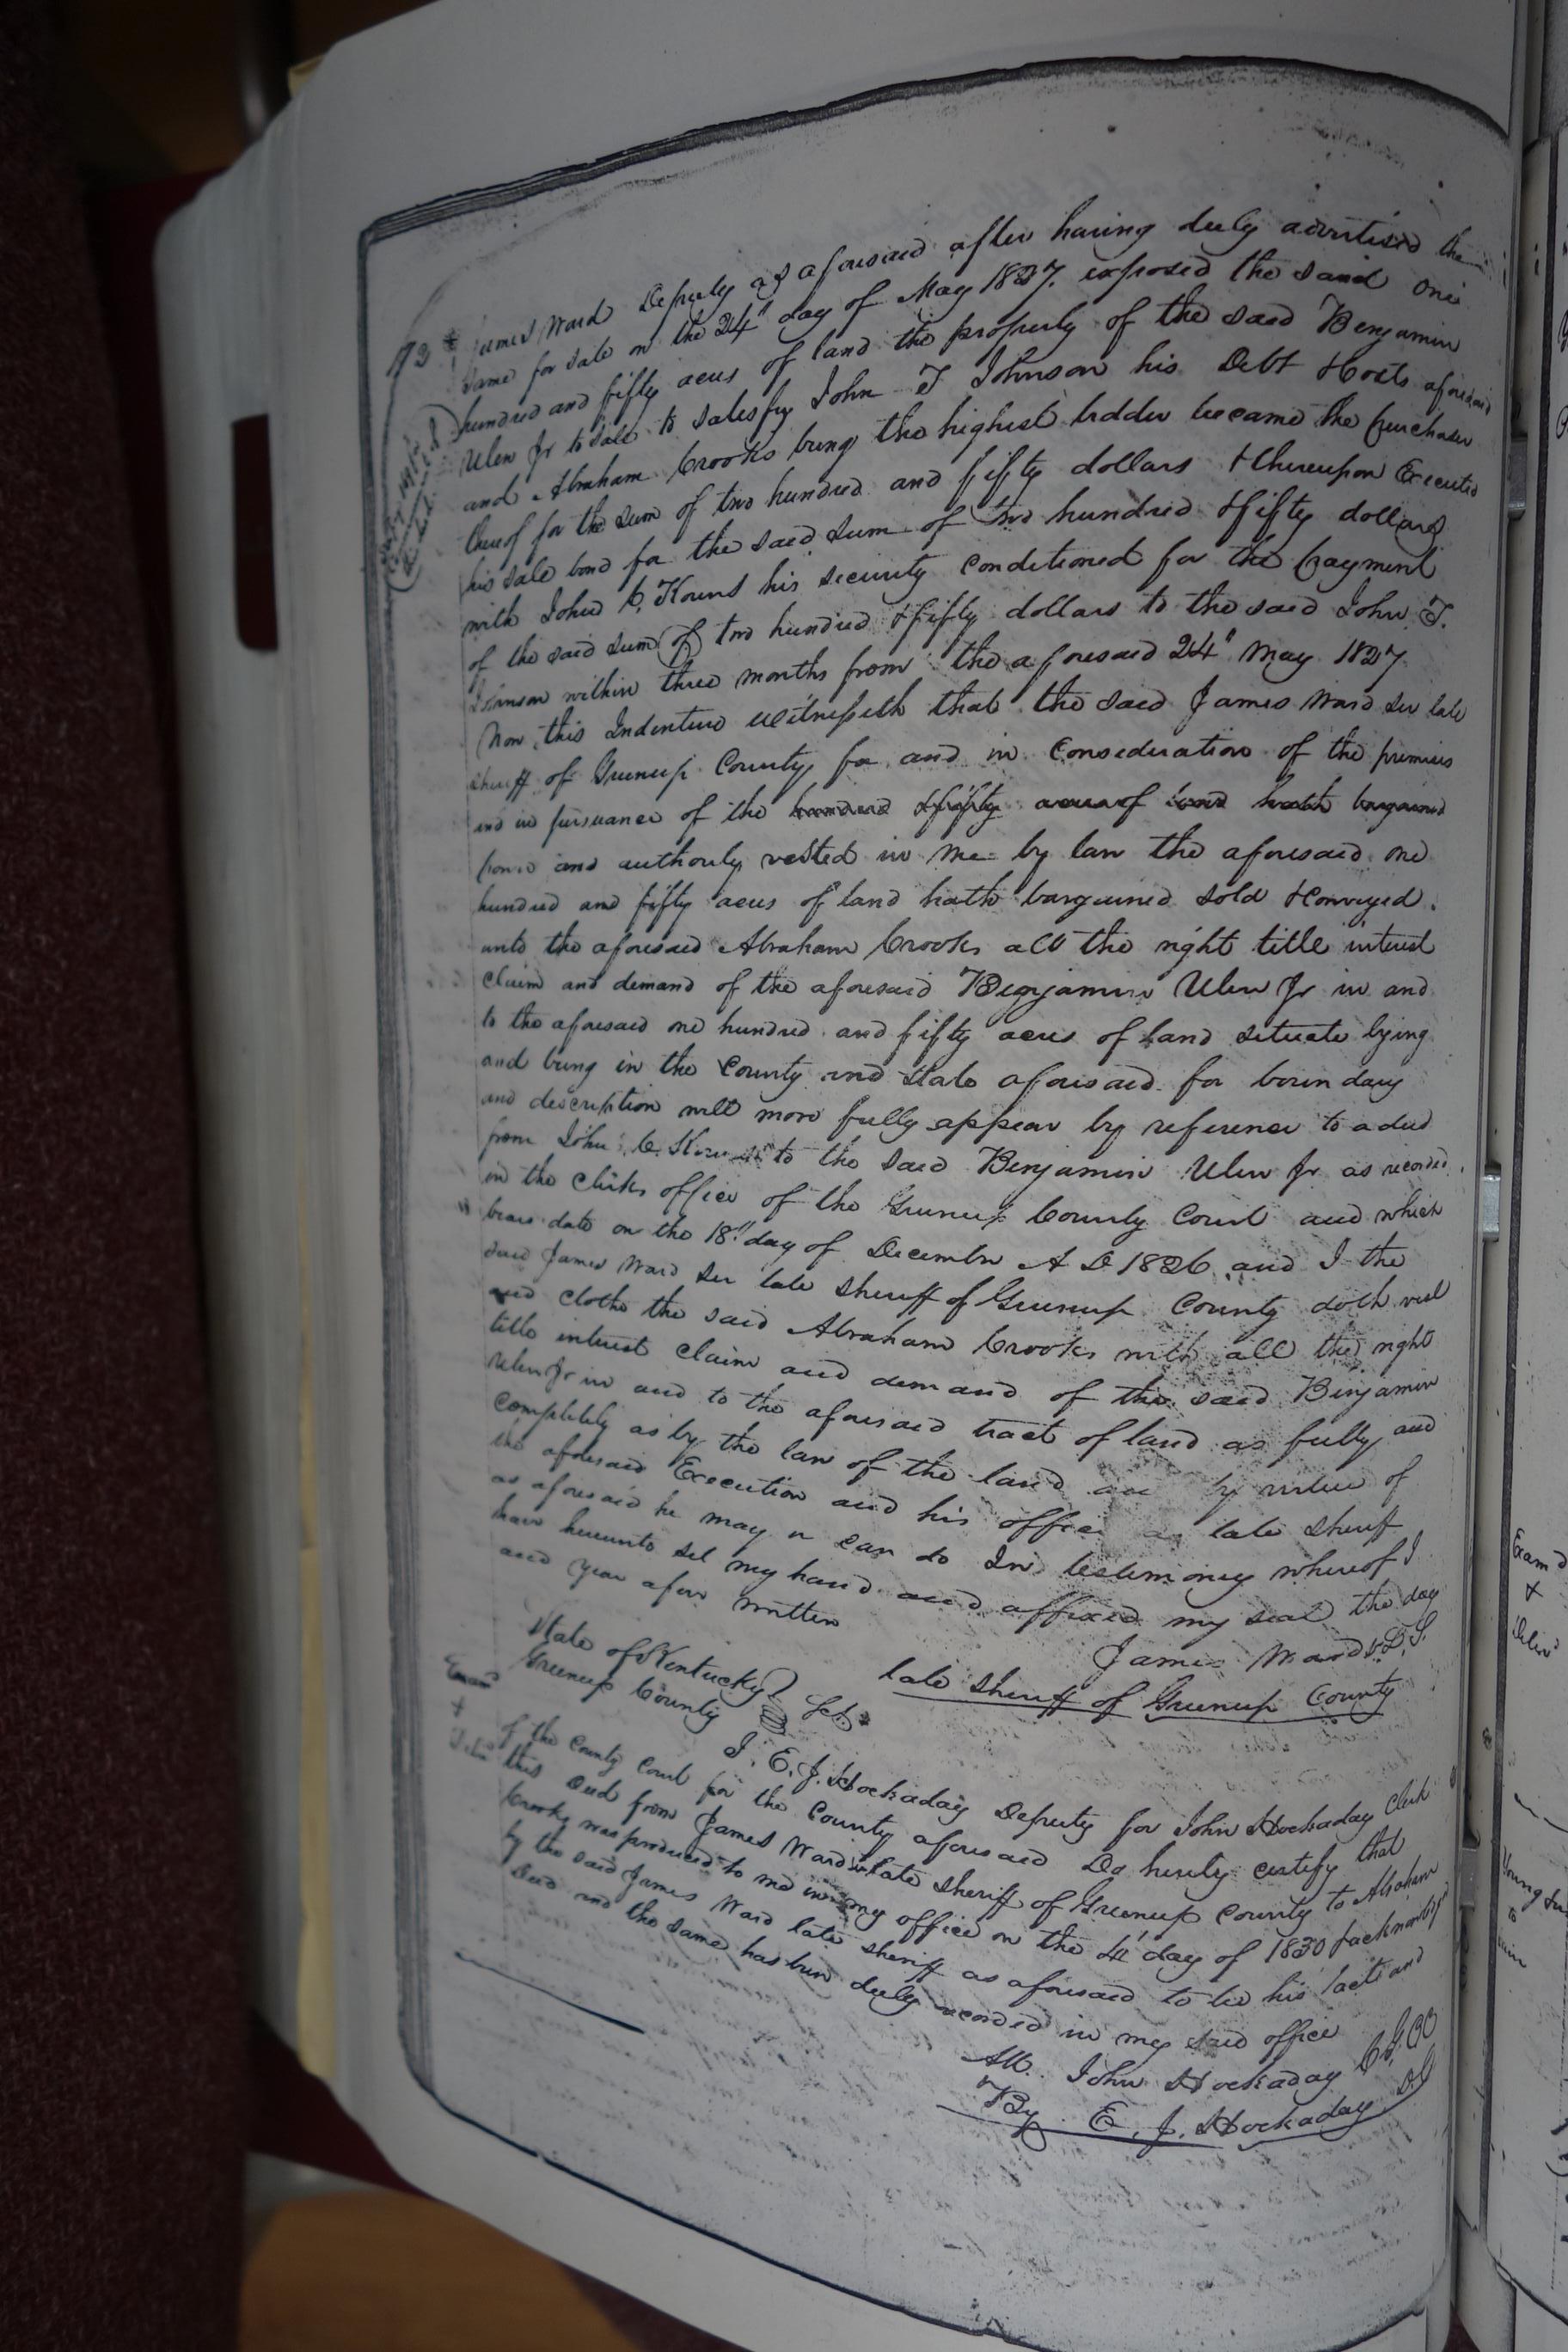 James Ward Deputy as aforesaid after having duly advertised the
same for sale on the 24" day of May 1827. exposed the said one
hundred and fifty acres of land the property of the said Benjamin
Ulen Jr to sale to satisfy John T Johnson his Debt & Costs aforesaid
and Abraham Crooks being the highest bidder became the purchaser
thereof for the sum of two hundred and fifty dollars & thereupon Executed
his sale bond for the said sum of two hundred & fifty dollars
with John C. Kouns his security conditioned for the payment
of the said sum of two hundred & fifty dollars to the said John T.
Johnson within three months from the aforesaid 24" May 1827
Now this Indenture witnesseth that the said James Ward Snr late
sheriff of Greenup County for and in Consideration of the premises
and in pursuance of the hundred & fifty acres of land hath bargained
power and authority vested in me by law the aforesaid one
hundred and fifty acres of land hath bargained sold & conveyed
unto the aforesaid Abraham Crooks all the right title interest
claim and demand of the aforesaid Benjamin Ulen Jr in and
to the aforesaid one hundred and fifty acres of land situate lying
and being in the County and State aforesaid for boundary
and description will more fully appear by reference to a deed
from John C. Kouns to the said Benjamin Ulen Jr as recorded
in the clerks office of the Greenup County Court and which
bears date on the 18" day of December A D 1826 and I the
said James Ward Snr late sheriff of Greenup County doth vest
and clothe the said Abraham Crooks with all the right
title interest claim and demand of the said Benjamin
Ulen Jr in and to the aforesaid tract of land as fully and
completely as by the law of the land by virtue of
the aforesaid Execution and his office as late sheriff
as aforesaid he may or can do In testimony whereof I
have hereunto set my hand and affixed my seal the day
and year afore written
James Ward
late sheriff of Greenup County
State of Kentucky
Greenup County Sct.
I, E. J. Hockaday Deputy for John Hockaday Clerk
of the County Court for the County aforesaid Do hereby certify that
this Deed from James Ward late Sheriff of Greenup County to Abraham
Crooks was produced to me in my office on the 4" day of 1830 & acknowledged
by the said James Ward late sheriff as aforesaid to be his act and
Deed and the same has been duly recorded in my said office
Att. John Hockaday
By E. J. Hockaday D.C